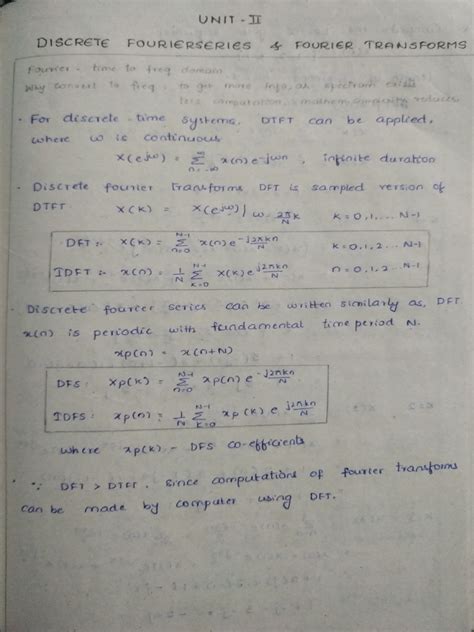 UNIT - II
DISCRETE FOURIERSERIES & FOURIER TRANSFORMS
Fourier - time to freq domain
Why convert to freq - to get more info, as spectrum exists
less computation, mathem. complexity reduces
· For discrete-time systems, DTFT can be applied,
where ω is continuous
X(e^jω) = Σ_{n=-∞}^{∞} x(n) e^-jωn , infinite duration
· Discrete fourier transforms DFT is sampled version of
DTFT. X(k) = X(e^jω)| ω = 2π/N k   k = 0,1,... N-1
DFT :- X(k) = Σ_{n=0}^{N-1} x(n) e^{-j2πkn/N}   k = 0,1,2... N-1
IDFT :- x(n) = 1/N Σ_{k=0}^{N-1} X(k) e^{j2πkn/N}   n = 0,1,2... N-1
· Discrete fourier series can be written similarly as, DFT
x(n) is periodic with fundamental time period N.
xp(n) = x(n+N)
DFS: xp(k) = Σ_{n=0}^{N-1} xp(n) e^{-j2πkn/N}
IDFS: xp(n) = 1/N Σ_{k=0}^{N-1} xp(k) e^{j2πkn/N}
where xp(k) - DFS co-efficients
· ∵ DFT > DTFT, since computations of fourier transforms
can be made by computer using DFT.